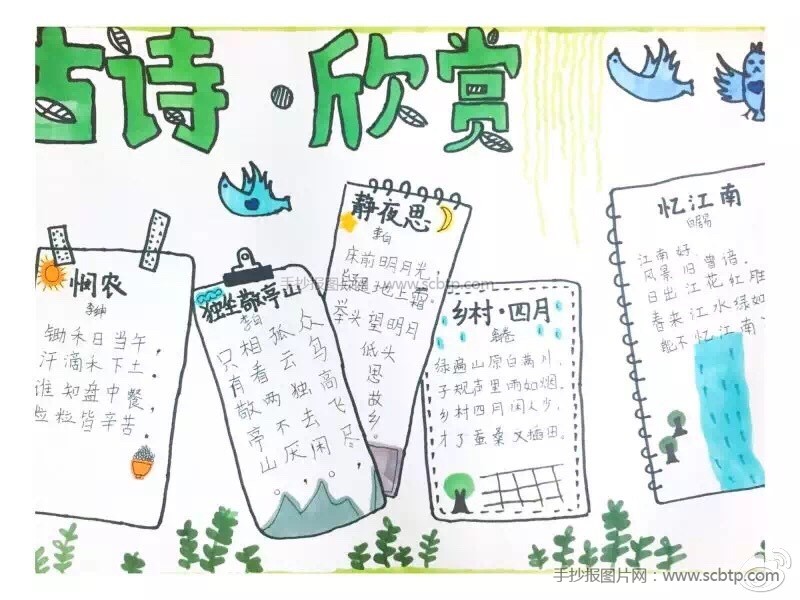 古诗·欣赏
悯农
李绅
锄禾日当午，
汗滴禾下土
谁知盘中餐，
粒粒皆辛苦．
独坐敬亭山
李白
众鸟高飞尽，
孤云独去闲。
相看两不厌，
只有敬亭山
静夜思
李白
床前明月光，
疑是地上霜．
举头望明月
低头
思
故
乡．
乡村·四月
翁卷
绿遍山原白满川，
子规声里雨如烟．
乡村四月闲人少，
才了蚕桑又插田．
忆江南
白居易
江南好，
风景旧曾谙．
日出江花红胜
春来江水绿如
能不忆江南、
手抄报图片网：www.scbtp.com